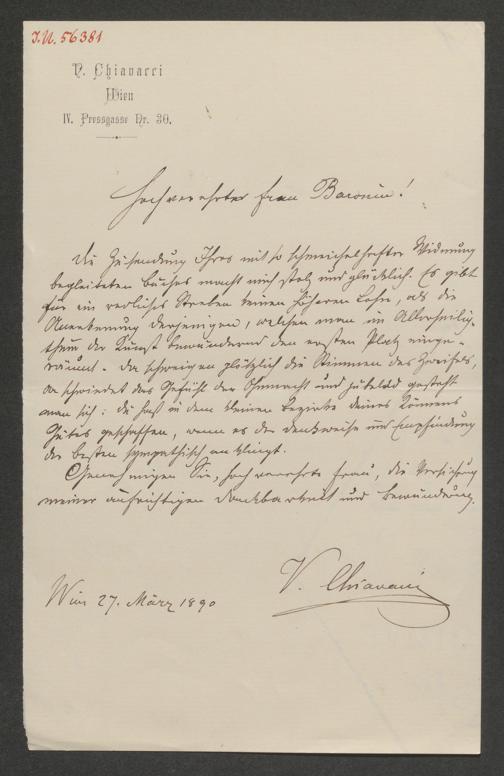 I.N. 56381
V. Chiavacci
Wien
IV. Pressgasse Nr. 30.
Hochverehrte Frau Baronin!
Die Zusendung Ihres mit so schmeichelhafter Widmung
begleiteten Buches macht mich stolz und glücklich. Es gibt
für ein redliches Streben keinen höheren Lohn, als die
Anerkennung derjenigen, welchen man im Allerheilig-
thum der Kunst bewundernd den ersten Platz einge-
räumt. Da schweigen plötzlich die Stimmen des Zweifels,
da schwindet das Gefühl der Ohnmacht und jubelnd gesteht
man sich: du hast in dem kleinen Bezirke deines Könnens
Gutes geschaffen, wenn es der Denkweise und Empfindung
der Besten sympathisch anklingt.
Genehmigen Sie, hochverehrte Frau, die Versicherung
meiner aufrichtigen Dankbarkeit und Bewunderung.
V. Chiavacci
Wien 27. März 1890